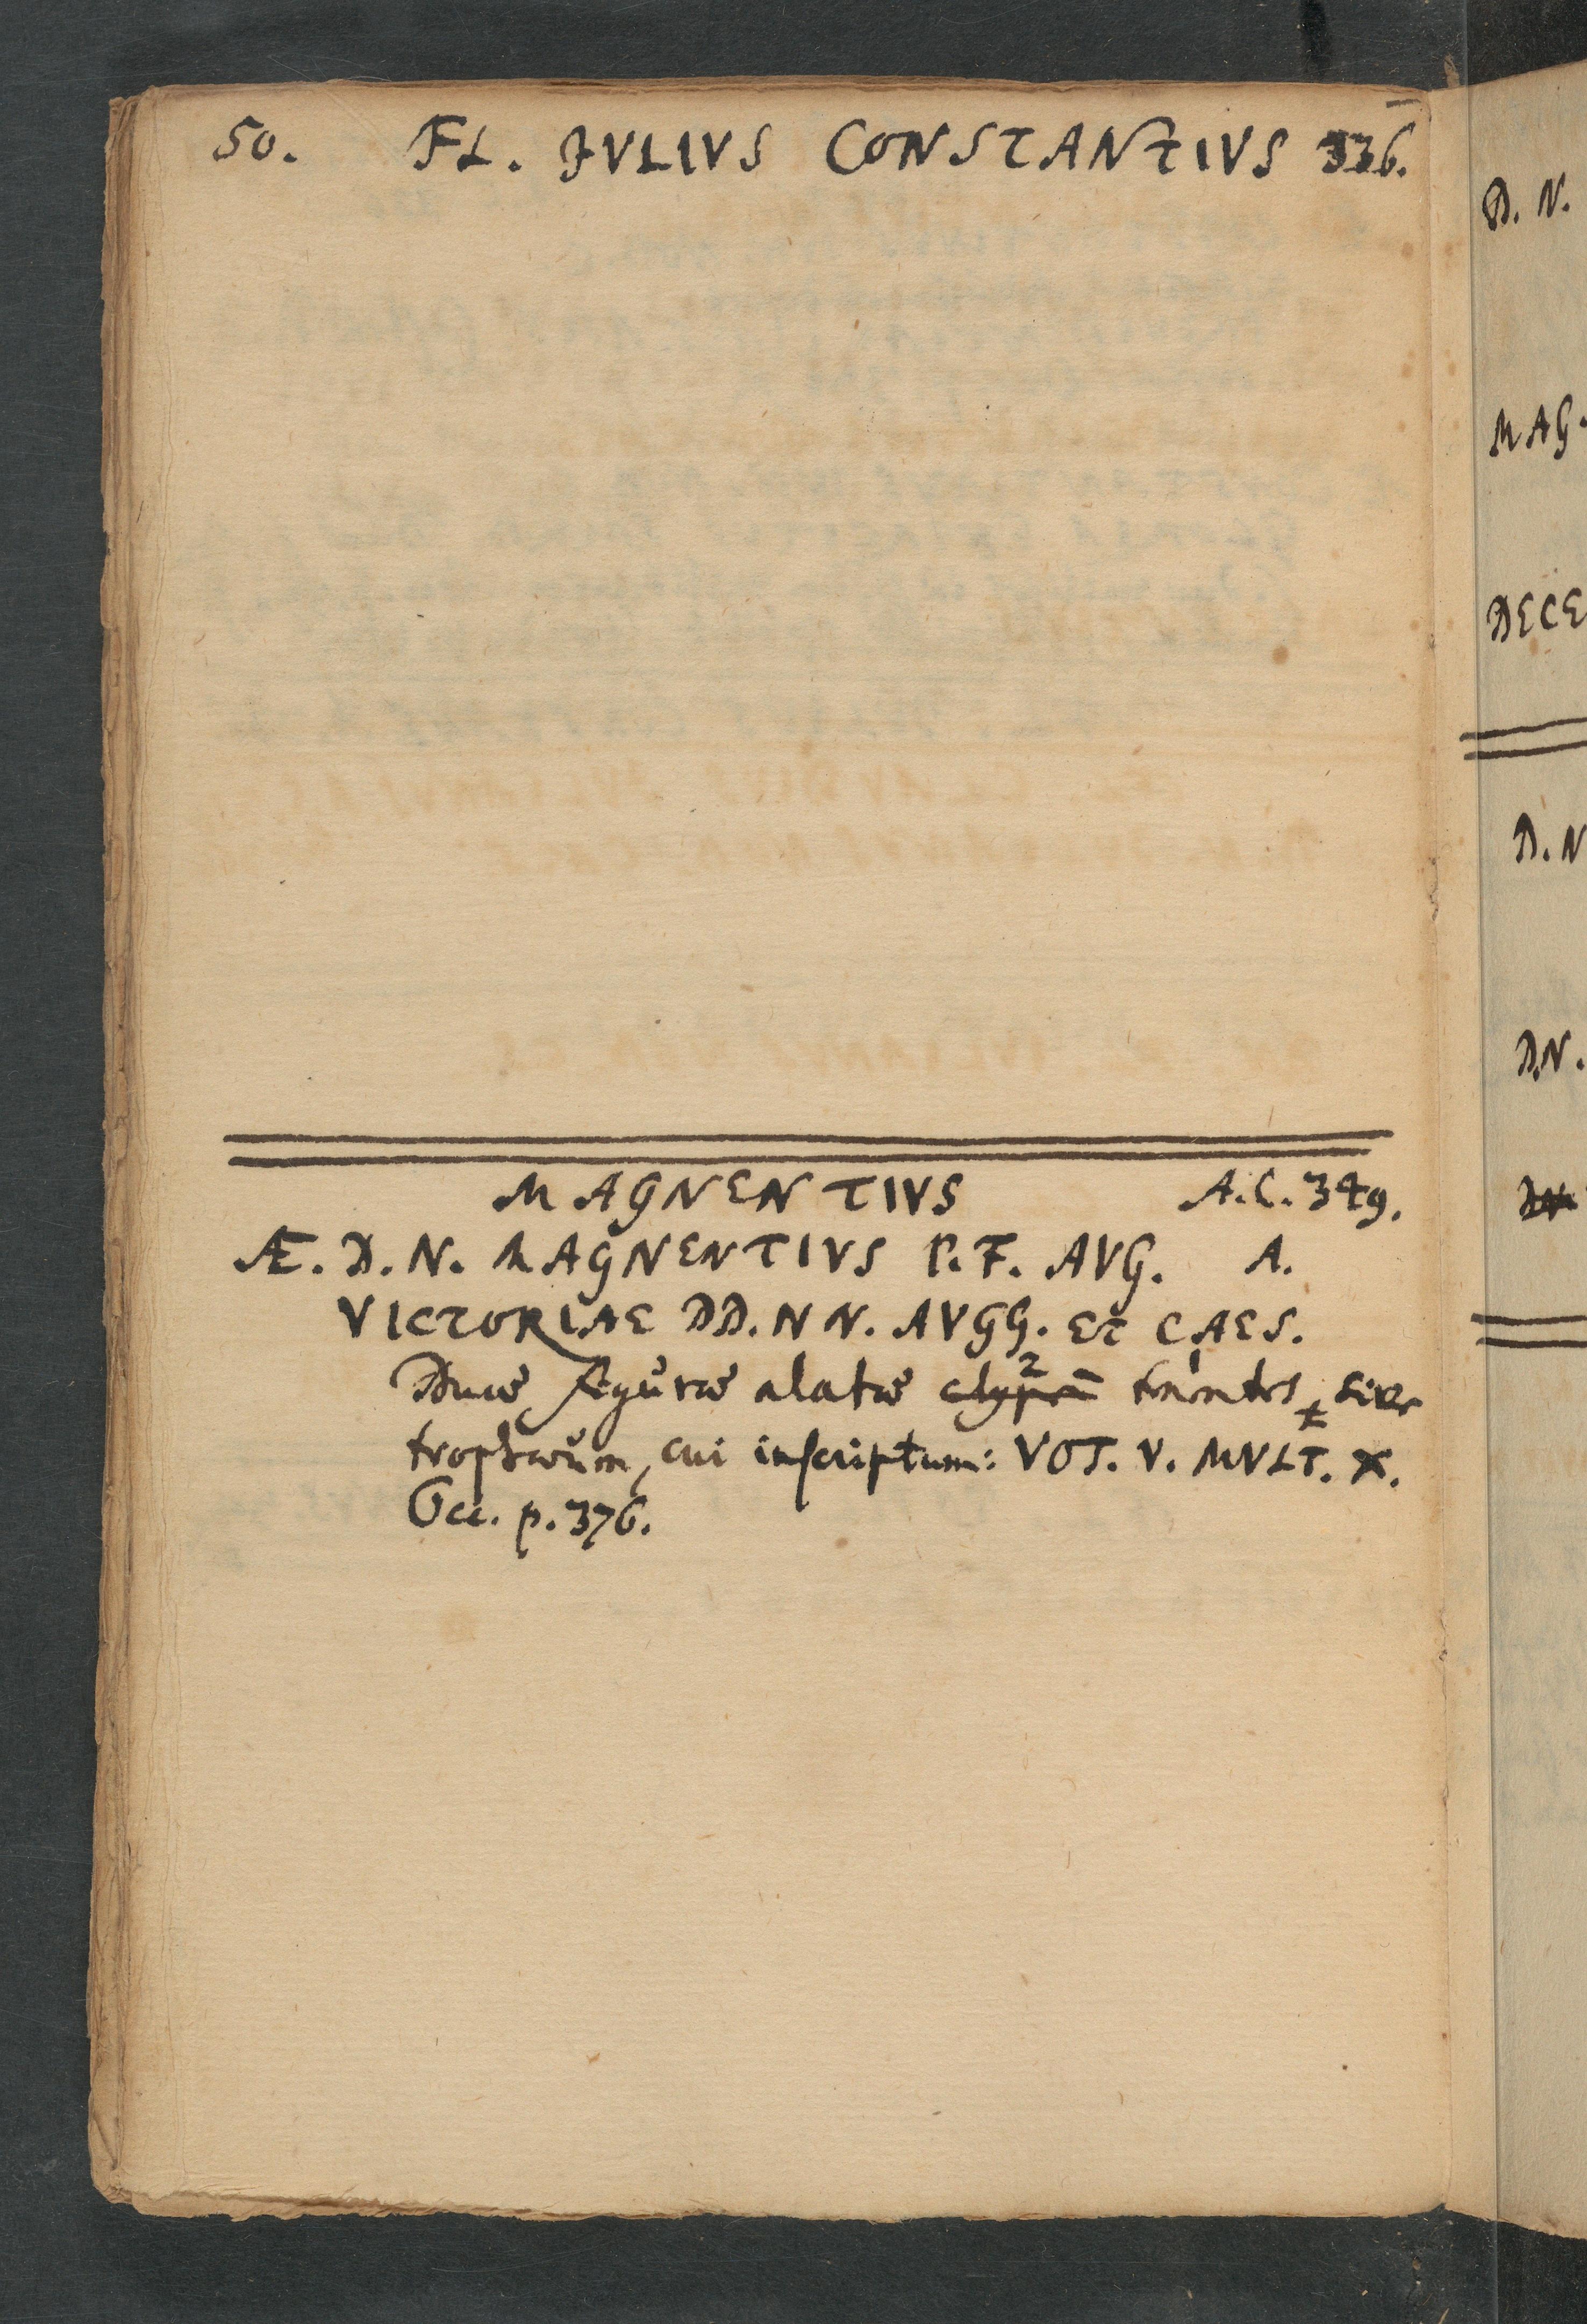 50. FL. JVLIVS CONSTANTIVS 336.
MAGNENTIVS A.C. 349.
Æ. D. N. MAGNENTIVS P. F. AVG. A.
VICTORIAE DD. NN. AVGG. ET CAES.
Duæ figuræ alatæ clypeū tenentes sive
trophæum, cui inscriptum: VOT. V. MVLT. X.
Occ. p. 376.
D. N.
MAG.
DECE
D. N
D.N.